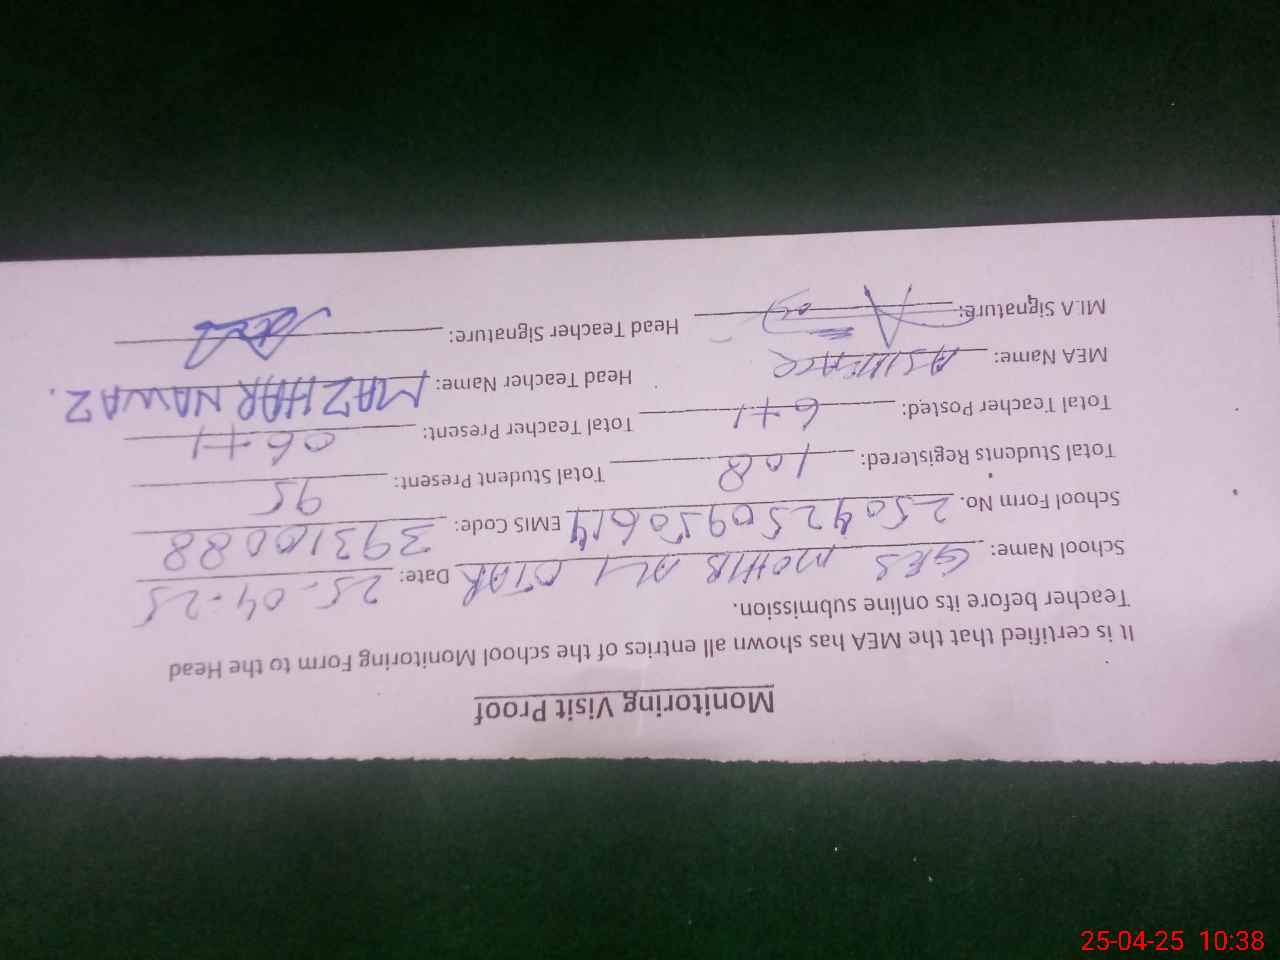 Monitoring Visit Proof
It is certified that the MEA has shown all entries of the school Monitoring Form to the Head
Teacher before its online submission.
School Name: GES MOHIB ALI OTAR Date: 25-04-25
School Form No. 2504250950614 EMIS Code: 39310088
Total Students Registered: 108 Total Student Present: 95
Total Teacher Posted: 6+1 Total Teacher Present: 06+1
MEA Name: Head Teacher Name: MAZHAR NAWAZ.
MEA Signature: Head Teacher Signature:
25-04-25 10:38